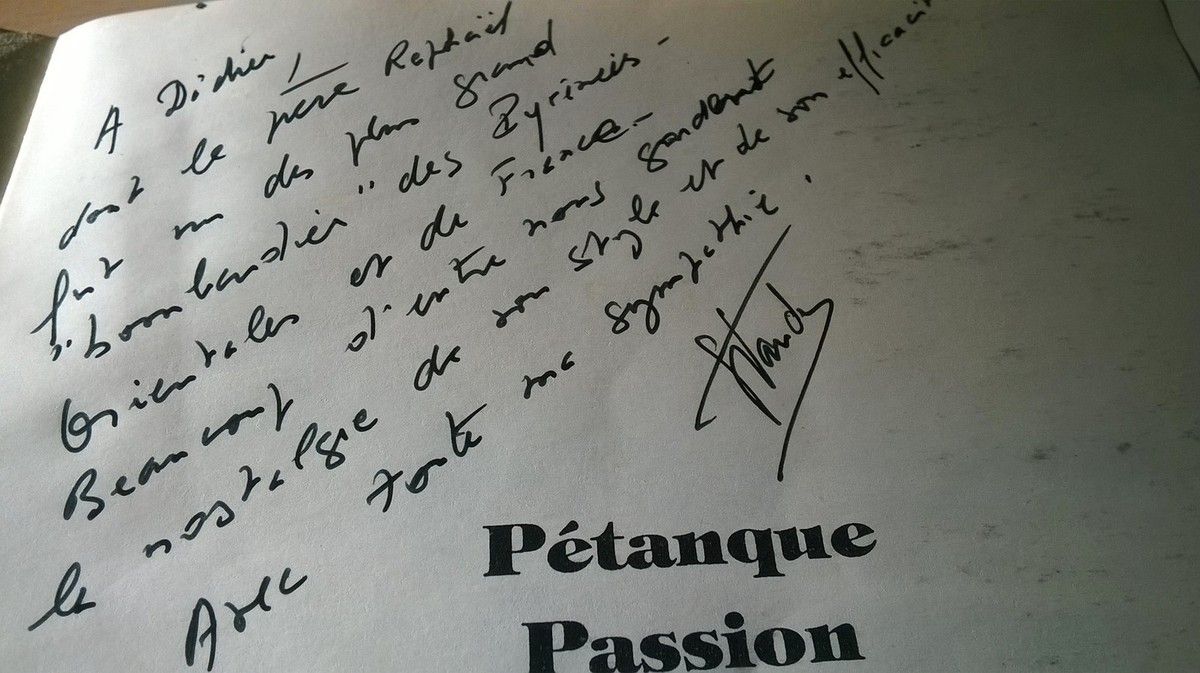 A Didier,
dont le père Raphaël
fut un des plus grand
"bombardier" des Pyrénées-
Orientales et de France-
Beaucoup d'entre nous gardent
la nostalgie de son style et de son efficacité
Avec toute ma sympathie.
Pétanque
Passion